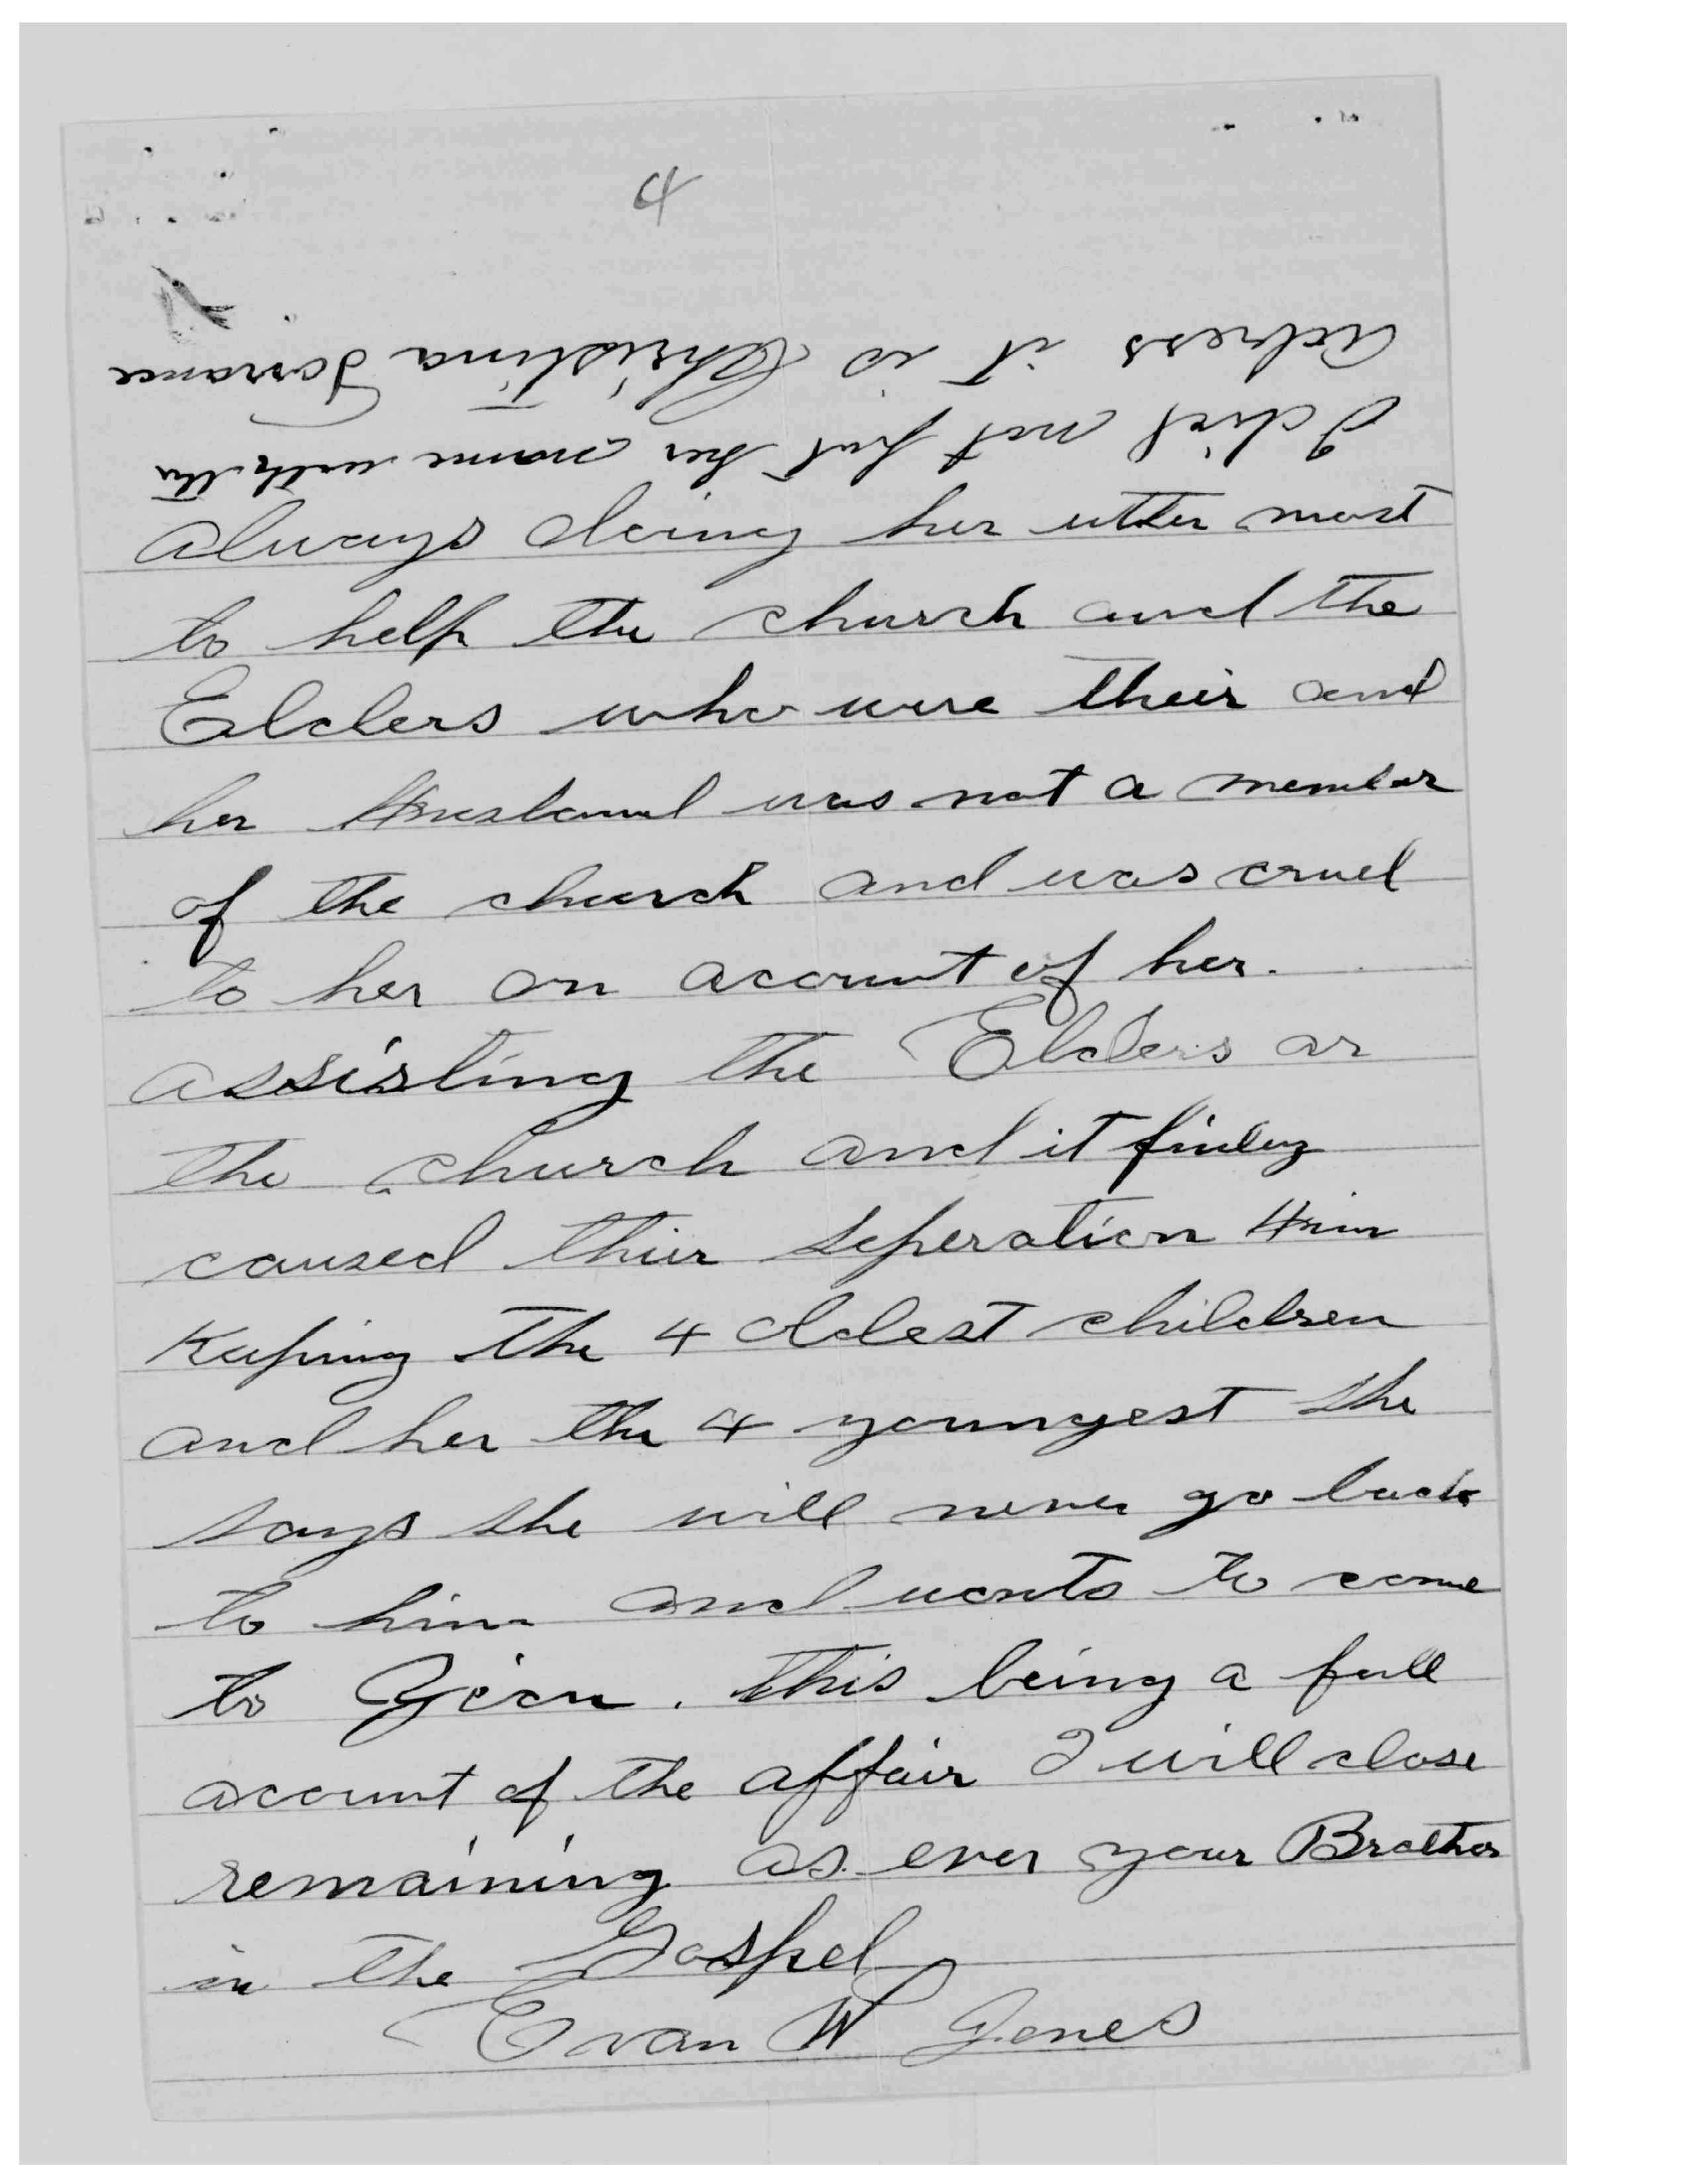 4
I did not put her name with the
Address it is Christina Torrance
always doing her utter most
to help the church and the
Elders who were their and
her Husband was not a member
of the church and was cruel
to her on account of her.
assisting the Elders or
the church and it finley
caused thier seperation Him
Keeping the 4 oldest children
and her the 4 youngest she
says she will never go back
to him and wants to come
to Zion. this being a full
account of the affair I will close
remaining as ever your Brother
in the Gospel
Evan W Jones